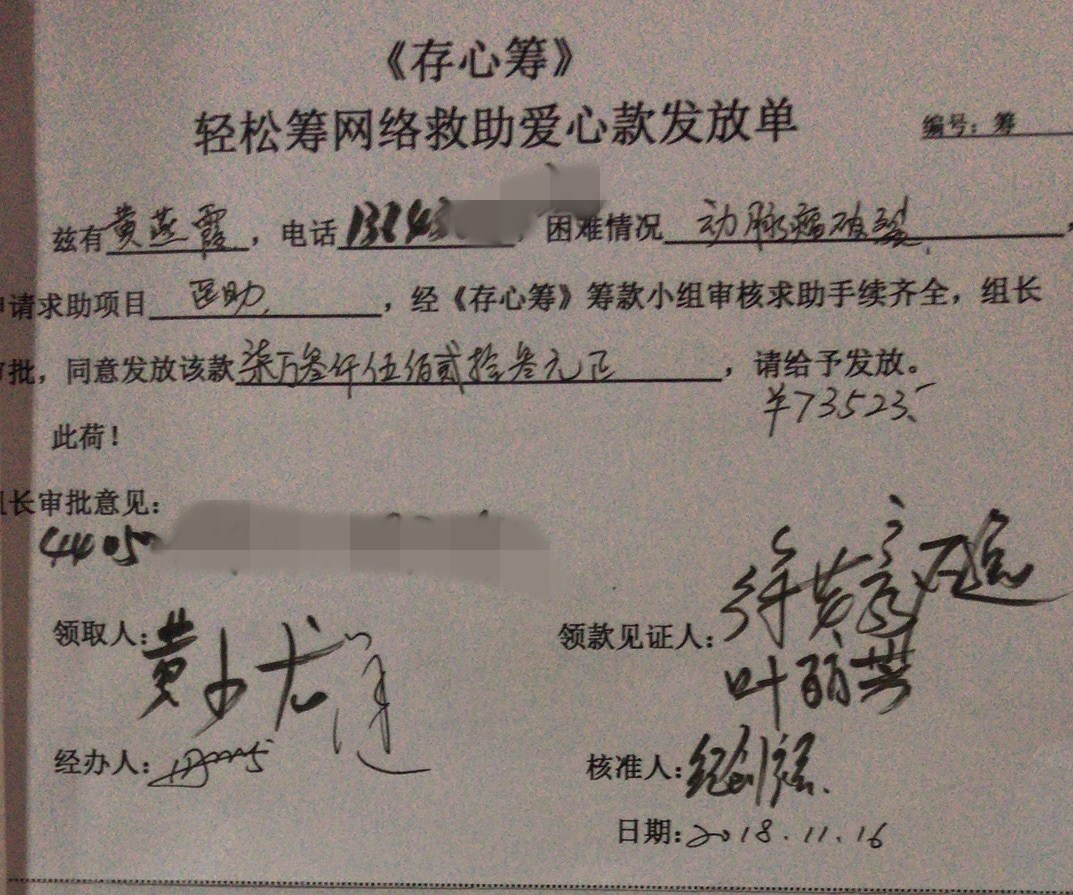 《存心筹》
轻松筹网络救助爱心款发放单
编号：筹
兹有黄燕霞，电话13643 困难情况动脉瘤破裂，
申请求助项目医助，经《存心筹》筹款小组审核求助手续齐全，组长
审批，同意发放该款柒万叁仟伍佰贰拾叁元正，请给予发放。
￥73523
此荷！
组长审批意见：
4405
领取人：黄小龙
领款见证人：
叶丽芸
经办人：
核准人：
日期：2018.11.16